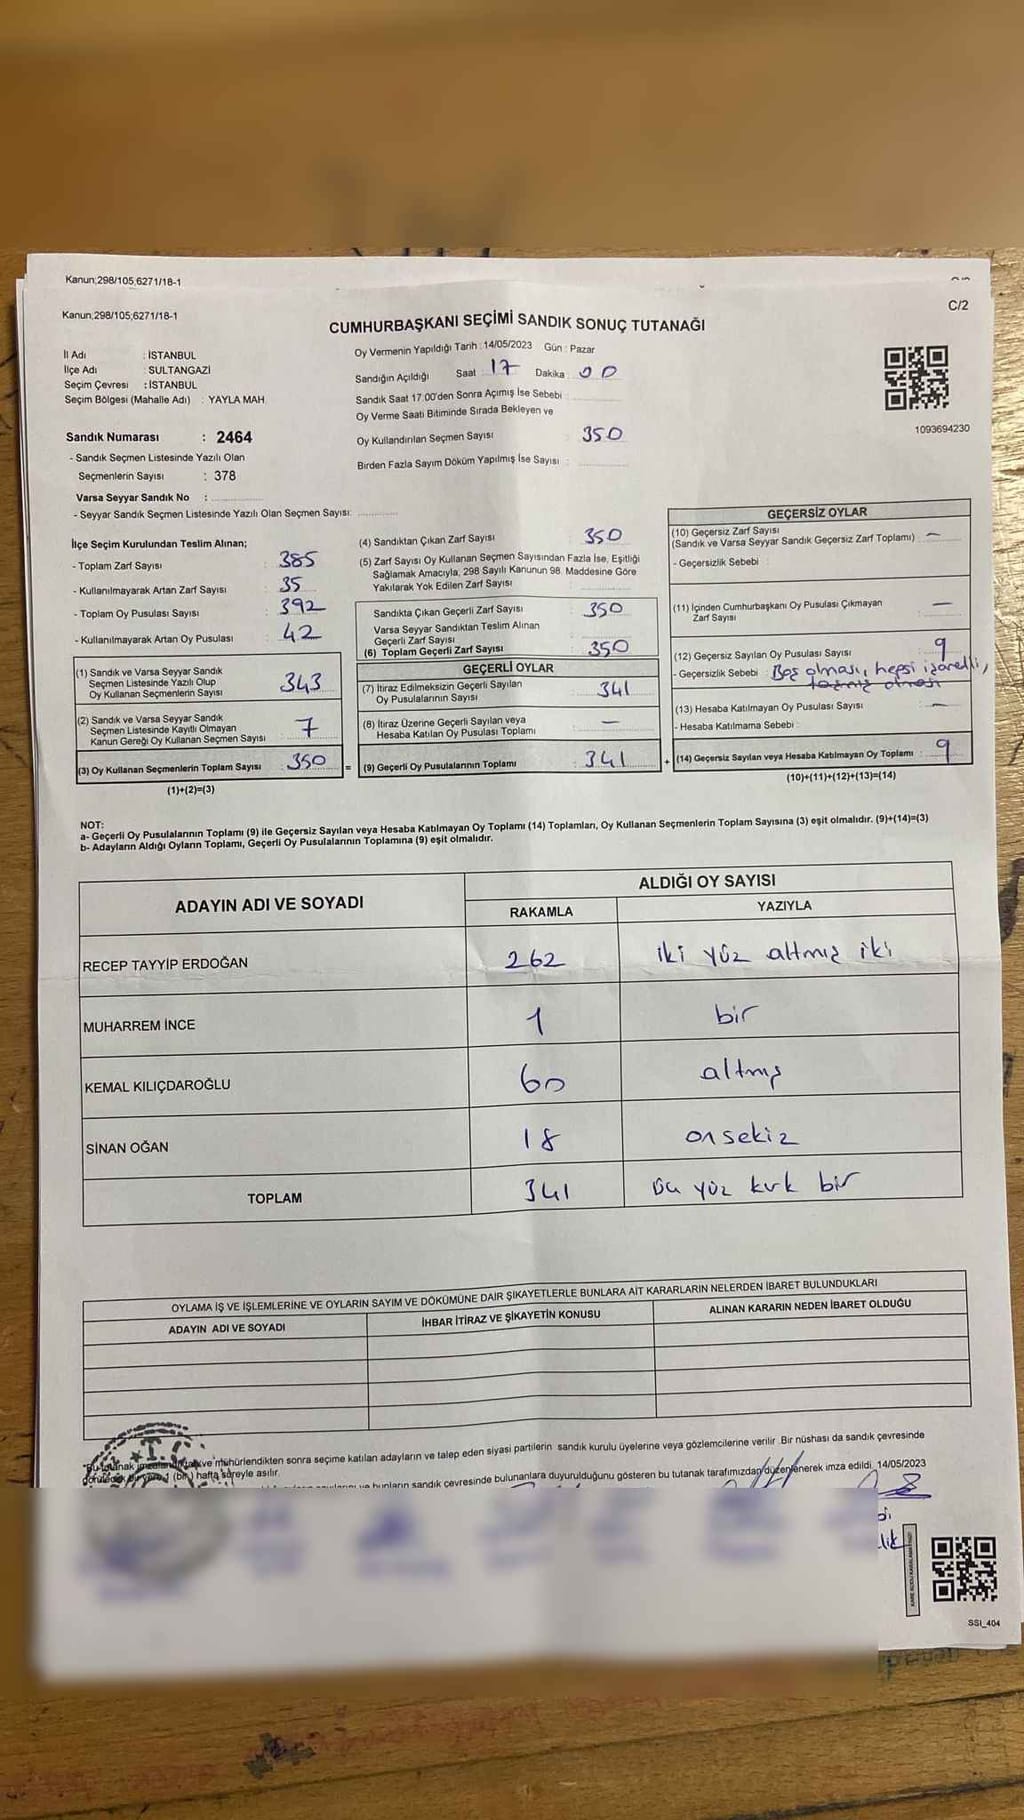 Kanun;298/105,6271/18-1
Kanun;298/105;6271/18-1
C/2
CUMHURBAŞKANI SEÇİMİ SANDIK SONUÇ TUTANAĞI
İl Adı : İSTANBUL
İlçe Adı : SULTANGAZİ
Seçim Çevresi : İSTANBUL
Seçim Bölgesi (Mahalle Adı) : YAYLA MAH.
Sandık Numarası : 2464
- Sandık Seçmen Listesinde Yazılı Olan
Seçmenlerin Sayısı : 378
Varsa Seyyar Sandık No :
- Seyyar Sandık Seçmen Listesinde Yazılı Olan Seçmen Sayısı:
Oy Vermenin Yapıldığı Tarih : 14/05/2023 Gün : Pazar
Sandığın Açıldığı Saat : 17 Dakika : 00
Sandık Saat 17:00'den Sonra Açımış İse Sebebi :
Oy Verme Saati Bitiminde Sırada Bekleyen ve
Oy Kullandırılan Seçmen Sayısı : 350
Birden Fazla Sayım Döküm Yapılmış İse Sayısı :
1093694230
İlçe Seçim Kurulundan Teslim Alınan;
- Toplam Zarf Sayısı : 385
- Kullanılmayarak Artan Zarf Sayısı : 35
- Toplam Oy Pusulası Sayısı : 392
- Kullanılmayarak Artan Oy Pusulası : 42
(1) Sandık ve Varsa Seyyar Sandık
Seçmen Listesinde Yazılı Olup
Oy Kullanan Seçmenlerin Sayısı : 343
(2) Sandık ve Varsa Seyyar Sandık
Seçmen Listesinde Kayıtlı Olmayan
Kanun Gereği Oy Kullanan Seçmen Sayısı : 7
(3) Oy Kullanan Seçmenlerin Toplam Sayısı : 350
(1)+(2)=(3)
(4) Sandıktan Çıkan Zarf Sayısı : 350
(5) Zarf Sayısı Oy Kullanan Seçmen Sayısından Fazla İse, Eşitliği
Sağlamak Amacıyla, 298 Sayılı Kanunun 98. Maddesine Göre
Yakılarak Yok Edilen Zarf Sayısı :
Sandıkta Çıkan Geçerli Zarf Sayısı : 350
Varsa Seyyar Sandıktan Teslim Alınan
Geçerli Zarf Sayısı :
(6) Toplam Geçerli Zarf Sayısı : 350
GEÇERLİ OYLAR
(7) İtiraz Edilmeksizin Geçerli Sayılan
Oy Pusulalarının Sayısı : 341
(8) İtiraz Üzerine Geçerli Sayılan veya
Hesaba Katılan Oy Pusulası Toplamı : —
= (9) Geçerli Oy Pusulalarının Toplamı : 341 +
GEÇERSİZ OYLAR
(10) Geçersiz Zarf Sayısı
(Sandık ve Varsa Seyyar Sandık Geçersiz Zarf Toplamı) : —
- Geçersizlik Sebebi :
(11) İçinden Cumhurbaşkanı Oy Pusulası Çıkmayan
Zarf Sayısı : —
(12) Geçersiz Sayılan Oy Pusulası Sayısı : 9
- Geçersizlik Sebebi : Boş olması, hepsi işaretli,
(13) Hesaba Katılmayan Oy Pusulası Sayısı : —
- Hesaba Katılmama Sebebi :
(14) Geçersiz Sayılan veya Hesaba Katılmayan Oy Toplamı : 9
(10)+(11)+(12)+(13)=(14)
NOT:
a- Geçerli Oy Pusulalarının Toplamı (9) ile Geçersiz Sayılan veya Hesaba Katılmayan Oy Toplamı (14) Toplamları, Oy Kullanan Seçmenlerin Toplam Sayısına (3) eşit olmalıdır. (9)+(14)=(3)
b- Adayların Aldığı Oyların Toplamı, Geçerli Oy Pusulalarının Toplamına (9) eşit olmalıdır.
ADAYIN ADI VE SOYADI
ALDIĞI OY SAYISI
RAKAMLA YAZIYLA
RECEP TAYYİP ERDOĞAN 262 iki yüz altmış iki
MUHARREM İNCE 1 bir
KEMAL KILIÇDAROĞLU 60 altmış
SİNAN OĞAN 18 onsekiz
TOPLAM 341 üç yüz kırk bir
OYLAMA İŞ VE İŞLEMLERİNE VE OYLARIN SAYIM VE DÖKÜMÜNE DAİR ŞİKAYETLERLE BUNLARA AİT KARARLARIN NELERDEN İBARET BULUNDUKLARI
ADAYIN ADI VE SOYADI İHBAR İTİRAZ VE ŞİKAYETİN KONUSU ALINAN KARARIN NEDEN İBARET OLDUĞU
T.C.
ve mühürlendikten sonra seçime katılan adayların ve talep eden siyasi partilerin sandık kurulu üyelerine veya gözlemcilerine verilir. Bir nüshası da sandık çevresinde
(bir) hafta süreyle asılır.
bunların sandık çevresinde bulunanlara duyurulduğunu gösteren bu tutanak tarafımızdan düzenlenerek imza edildi. 14/05/2023
SSI_404